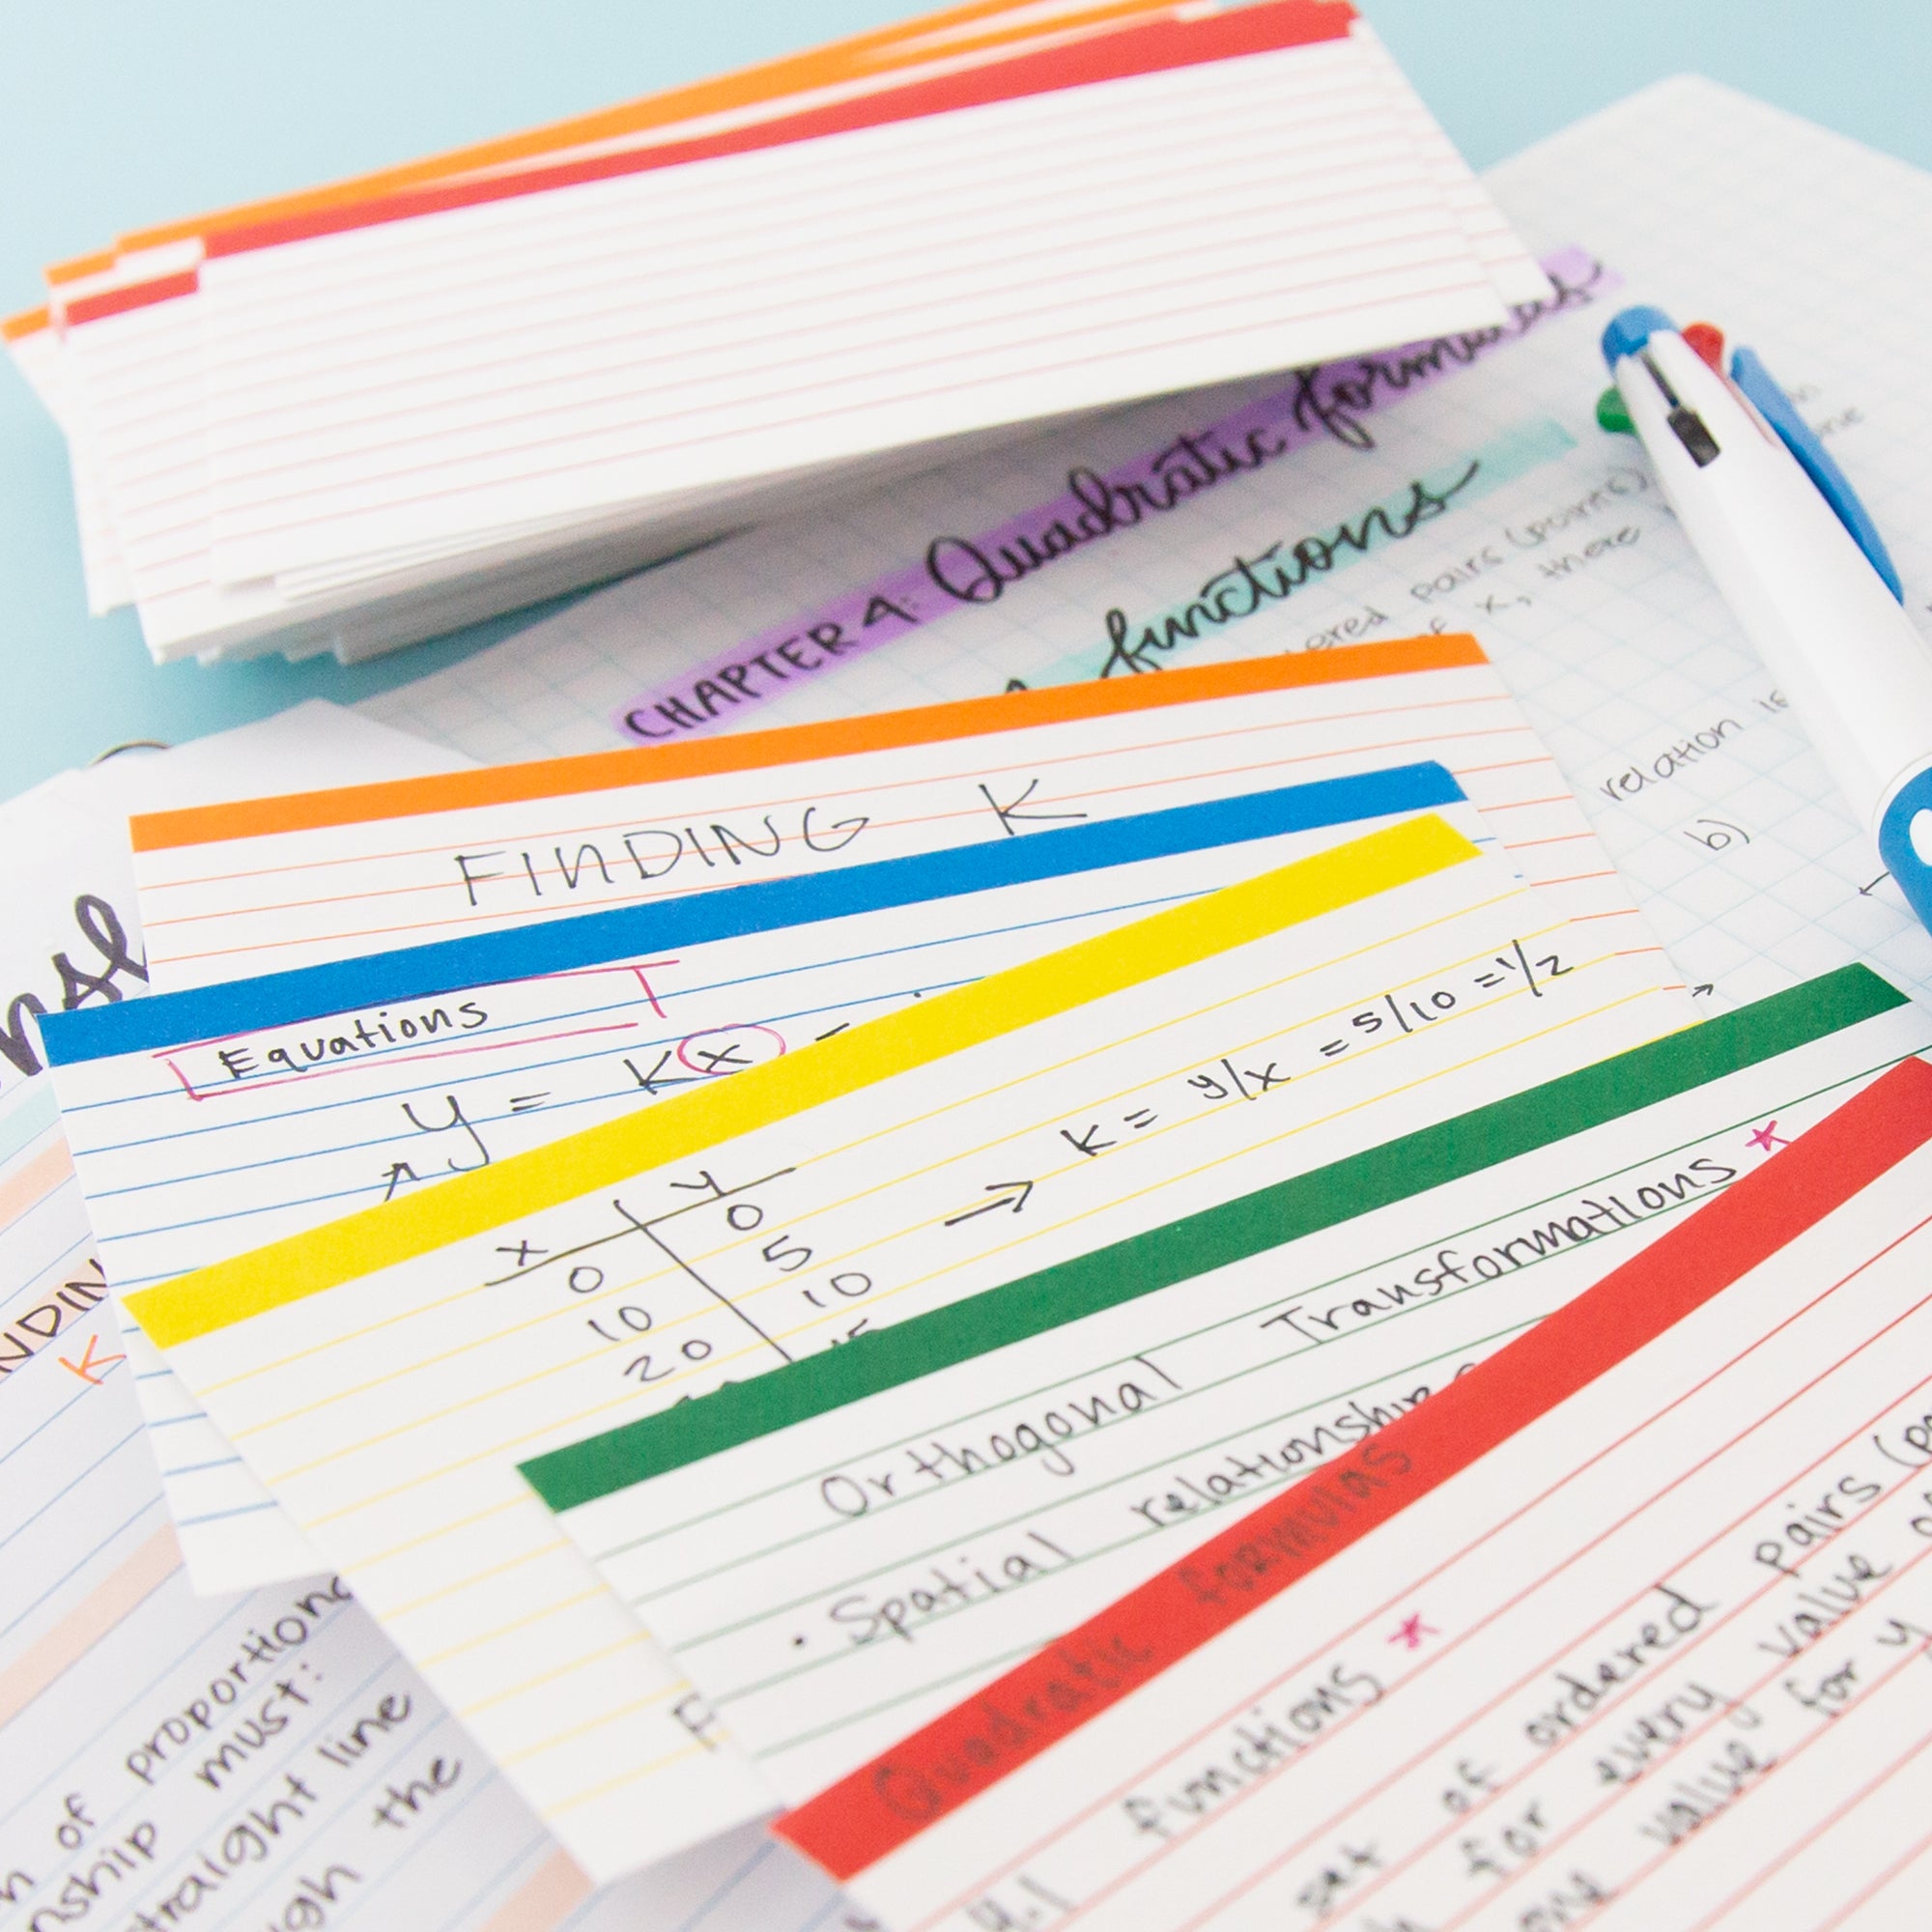 CHAPTER 4: Quadratic formulas
functions
pairs (points)
of x, there
relation is
b)
FINDING K
Equations
y = Kx -
x y
0 0
10 5
20 10
15
→ k = y/x = 5/10 = 1/2
Orthogonal Transformations *
• Spatial relationships
Quadratic formulas
4.1 functions *
set of ordered pairs
for every value
one value for y
K
of proportional
must:
straight line
the